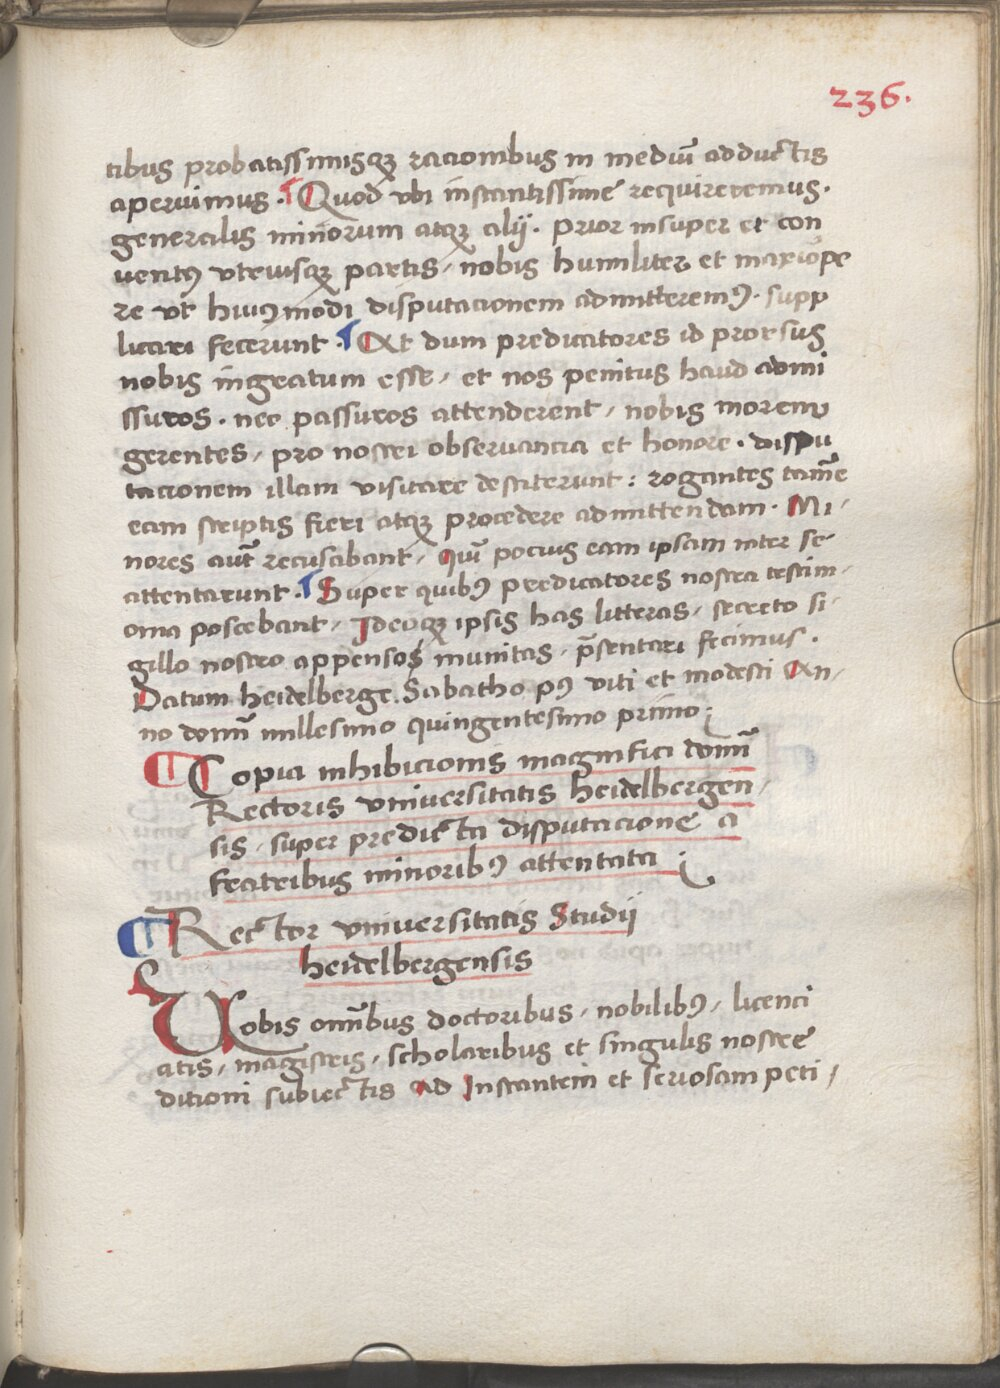 236.
tibus probatissimisqꝫ racionibus in mediū adductis
aperuimus. ¶ Quod vbi instantissime requireremus.
generalis minorum atqꝫ alij. prior insuper et con
uentꝰ vtriusqꝫ partis, nobis humiliter et maxiope
re vt huiꝰmodi disputacionem admitteremꝰ. supp
licari fecerunt. ¶ At dum predicatores id prorsus
nobis ingratum esse, et nos penitus haud admi
ssuros. nec passuros attenderent, nobis morem
gerentes, pro nostri obseruancia et honore. dispu
tacionem illam visitare destiterunt: rogantes tamē
eam scriptis fieri atqꝫ procedere admittendam. Mi,
nores aut̄ recusabant, quī pocius eam ipsam inter se
attentarunt. ¶ Super quibꝰ predicatores nostra testim,
onia poscebant, Ideoqꝫ ipsis has litteras, secreto si,
gillo nostro appensos munitas, p̄sentari fecimus.
Datum heidelberge. Sabatho pꝰ viti et modesti An,
no domī millesimo quingentesimo primo;
¶ Copia inhibicionis magnifici domī
Rectoris vniuersitatis heidelbergen,
sis, super predicta disputacione a
fratribus minoribꝰ attentata;
¶ Rector vniuersitatis Studij
heidelbergensis
Uobis omībus doctoribus, nobilibꝰ, licenci
atis, magistris, scholaribus et singulis nostre
ditioni subiectis ad Instantem et seriosam peti,